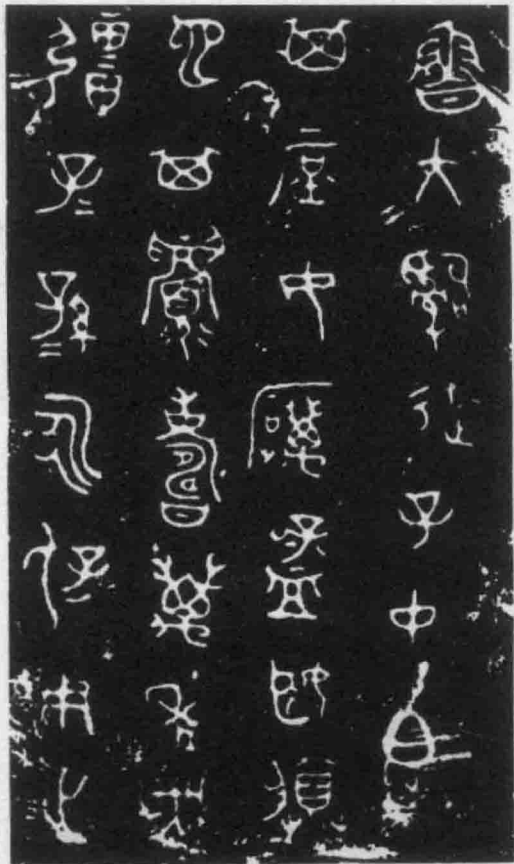 魯大𤔲徒子中白乍
其庶女厲孟姬賸
它其眉壽萬年無
疆子=孫=永保用之